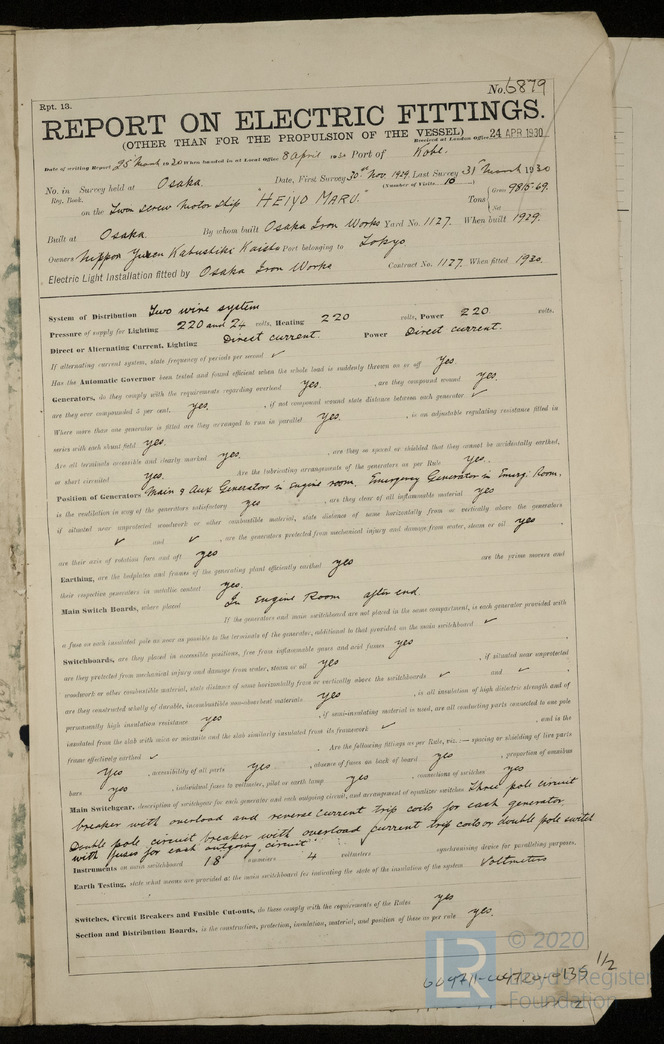 No. 6879
Rpt. 13.
REPORT ON ELECTRIC FITTINGS.
(OTHER THAN FOR THE PROPULSION OF THE VESSEL)
Received at London Office 24 APR. 1930
Date of writing Report 25 March 1930 When handed in at Local Office 8 April 1930 Port of Kobe.
No. in Survey held at Osaka. Date, First Survey 30th Nov. 1929. Last Survey 31st March 1930
Reg. Book. (Number of Visits 16)
on the Twin screw motor ship "HEIYO MARU." Tons Gross 9815.69.
Net
Built at Osaka. By whom built Osaka Iron Works Yard No. 1127. When built 1929.
Owners Nippon Yusen Kabushiki Kaisha Port belonging to Tokyo
Electric Light Installation fitted by Osaka Iron Works Contract No. 1127. When fitted 1930.
System of Distribution Two wire system
Pressure of supply for Lighting 220 and 24 volts, Heating 220 volts, Power 220 volts.
Direct or Alternating Current, Lighting Direct current. Power Direct current.
If alternating current system, state frequency of periods per second ✓
Has the Automatic Governor been tested and found efficient when the whole load is suddenly thrown on or off Yes.
Generators, do they comply with the requirements regarding overload yes. , are they compound wound yes.
are they over compounded 5 per cent. yes. , if not compound wound state distance between each generator ✓
Where more than one generator is fitted are they arranged to run in parallel yes. , is an adjustable regulating resistance fitted in
series with each shunt field yes.
Are all terminals accessible and clearly marked yes. , are they so spaced or shielded that they cannot be accidentally earthed,
or short circuited yes. Are the lubricating arrangements of the generators as per Rule yes.
Position of Generators Main & Aux Generators in Engine room. Emergency Generator in Emerg. Room.
is the ventilation in way of the generators satisfactory yes , are they clear of all inflammable material yes
if situated near unprotected woodwork or other combustible material, state distance of same horizontally from or vertically above the generators
✓ and ✓ , are the generators protected from mechanical injury and damage from water, steam or oil yes
are their axis of rotation fore and aft yes
Earthing, are the bedplates and frames of the generating plant efficiently earthed yes are the prime movers and
their respective generators in metallic contact yes.
Main Switch Boards, where placed In Engine Room after end.
If the generators and main switchboard are not placed in the same compartment, is each generator provided with
a fuse on each insulated pole as near as possible to the terminals of the generator, additional to that provided on the main switchboard ✓
Switchboards, are they placed in accessible positions, free from inflammable gases and acid fumes yes
are they protected from mechanical injury and damage from water, steam or oil yes , if situated near unprotected
woodwork or other combustible material, state distance of same horizontally from or vertically above the switchboards ✓ and ✓
are they constructed wholly of durable, incombustible non-absorbent materials yes , is all insulation of high dielectric strength and of
permanently high insulation resistance yes , if semi-insulating material is used, are all conducting parts connected to one pole
insulated from the slab with mica or micanite and the slab similarly insulated from its framework ✓ , and is the
frame effectively earthed ✓ . Are the following fittings as per Rule, viz.:— spacing or shielding of live parts
Yes , accessibility of all parts yes , absence of fuses on back of board yes , proportion of omnibus
bars yes , individual fuses to voltmeter, pilot or earth lamp yes , connections of switches yes
Main Switchgear, description of switchgear for each generator and each outgoing circuit, and arrangement of equalizer switches Three pole circuit
breaker with overload and reverse current trip coils for each generator.
Double pole circuit breaker with overload current trip coils or double pole switch
with fuses for each outgoing circuit.
Instruments on main switchboard 18 ammeters 4 voltmeters synchronising device for paralleling purposes.
Earth Testing, state what means are provided at the main switchboard for indicating the state of the insulation of the system Voltmeters
Switches, Circuit Breakers and Fusible Cut-outs, do these comply with the requirements of the Rules yes
Section and Distribution Boards, is the construction, protection, insulation, material, and position of these as per rule yes.
© 2020
Lloyd's Register
Foundation
1/2